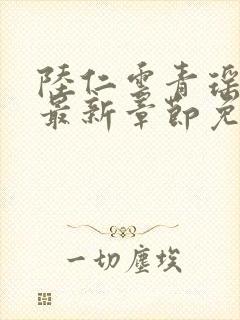 陸仁雲青瑶
最新章節免
一切塵埃